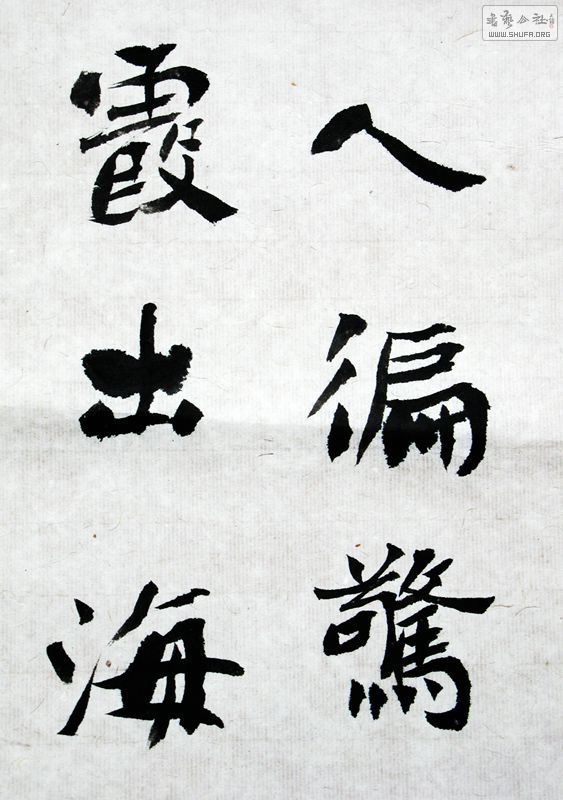 人徧驚
霞出海
書藝公社
WWW.SHUFA.ORG